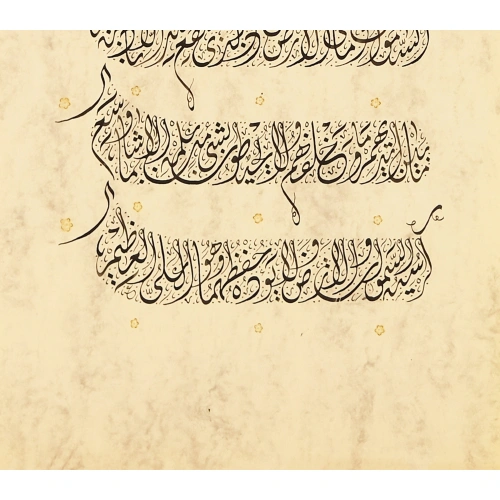 السموات وما في الارض من ذا الذي يشفع عنده الا باذنه
يعلم ما بين ايديهم وما خلفهم ولا يحيطون بشيء من علمه الا بما شاء وسع
كرسيه السموات والارض ولا يؤده حفظهما وهو العلي العظيم